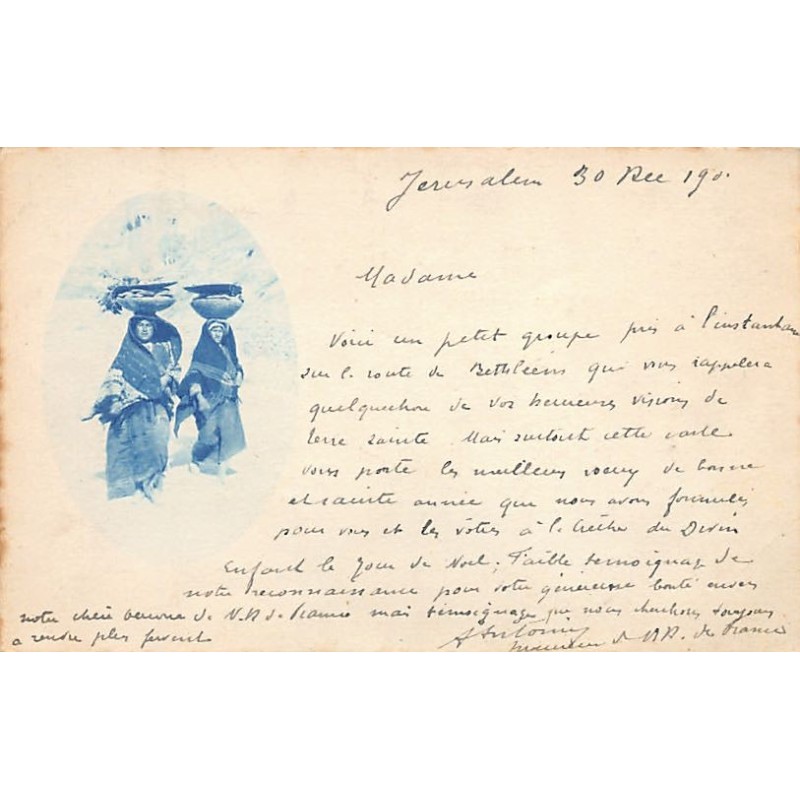 Jerusalem 30 Dec 190
Madame
Voici un petit groupe pris à l'instantané
sur la route de Bethléem qui vous rappelera
quelquechose de vos heureuses visions de
terre sainte. Mais surtout cette carte
vous porte les meilleurs voeux de bonne
et sainte année que nous avons formulés
pour vous et les vôtres à la Crèche du Divin
Enfant le Jour de Noel; Faible temoignage de
notre reconnaissance pour votre généreuse bonté envers
notre chère oeuvre de N.D de France mais témoignage que nous cherchons toujours
a rendre plus fervent
de N.D. de France